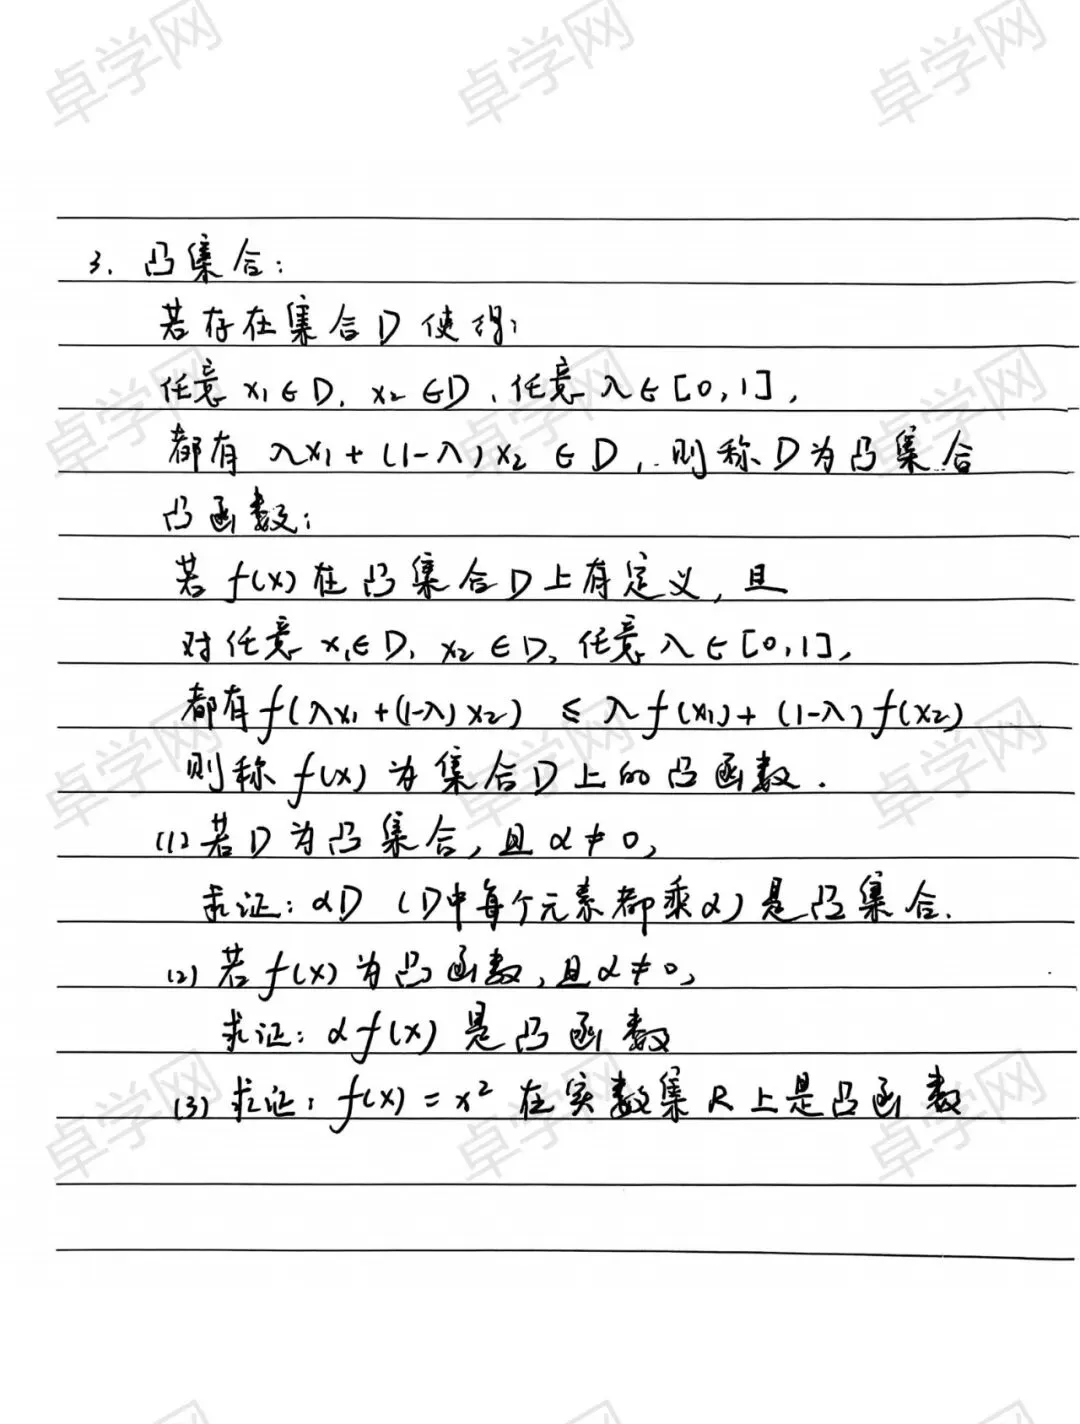 卓学网 卓学网 卓学网
3. 凸集合:
若存在集合D使得:
任意 x₁∈D, x₂∈D, 任意 λ∈[0,1],
都有 λx₁+(1-λ)x₂ ∈D, 则称D为凸集合
凸函数:
若 f(x) 在凸集合D上有定义, 且
对任意 x₁∈D, x₂∈D, 任意 λ∈[0,1],
都有 f(λx₁+(1-λ)x₂) ≤ λf(x₁)+(1-λ)f(x₂)
则称 f(x) 为集合D上的凸函数.
(1) 若D为凸集合, 且 α≠0,
求证: αD (D中每个元素都乘α) 是凸集合.
(2) 若 f(x) 为凸函数, 且 α≠0,
求证: αf(x) 是凸函数
(3) 求证: f(x)=x² 在实数集R上是凸函数
卓学网 卓学网 卓学网
卓学网 卓学网 卓学网
卓学网 卓学网 卓学网